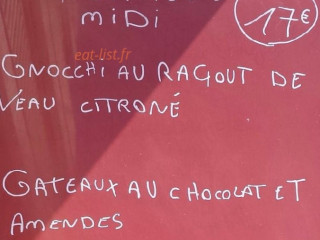 MIDI 17€
eat-list.fr
GNOCCHI AU RAGOUT DE
VEAU CITRONÉ
GATEAUX AU CHOCOLAT ET
AMENDES